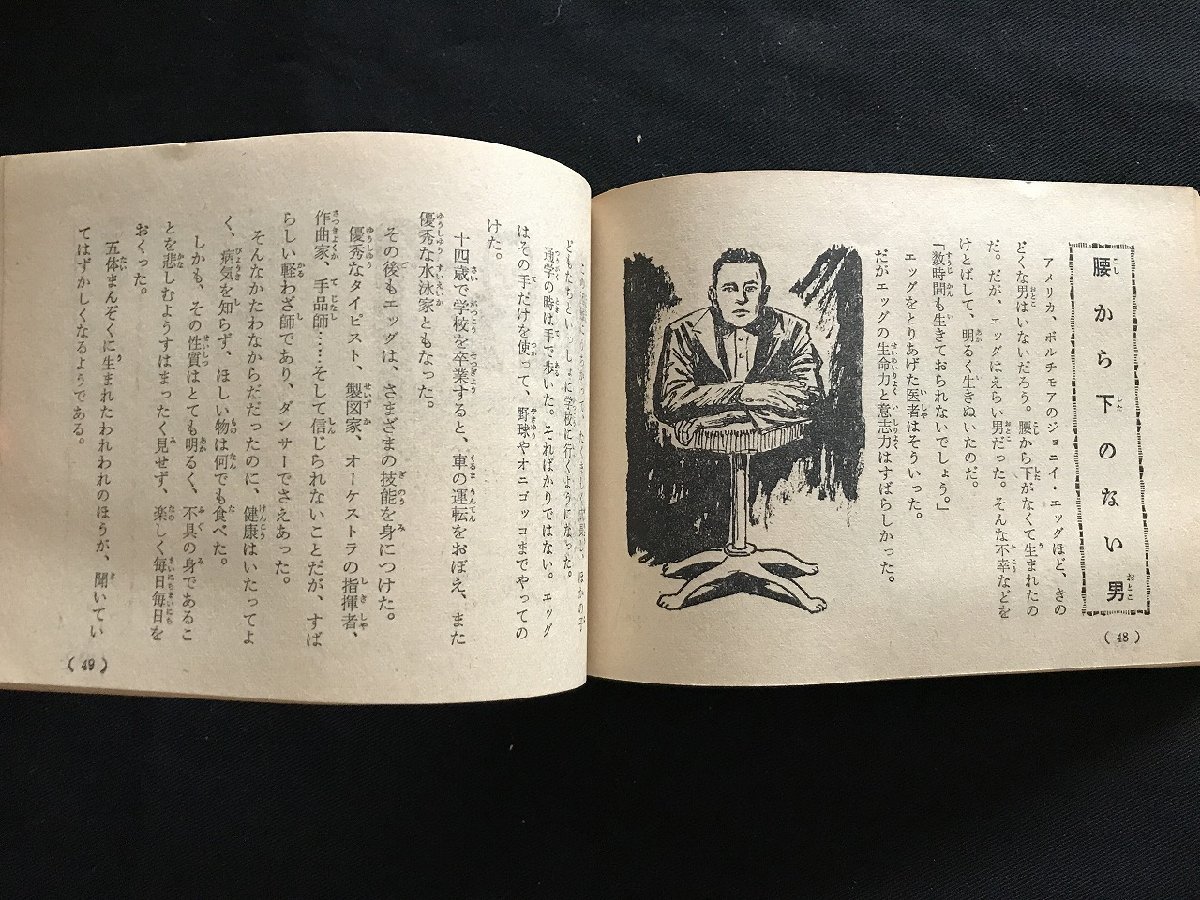 腰から下のない男
アメリカ、ボルチモアのジョニイ・エッグほど、きの
どくな男はいないだろう。腰から下がなくて生まれたの
だ。だが、エッグはえらい男だった。そんな不幸などを
けとばして、明るく生きぬいたのだ。
「数時間も生きておられないでしょう。」
エッグをとりあげた医者はそういった。
だがエッグの生命力と意志力はすばらしかった。
(48)
どもたちといっしょに学校に行くようになった。
通学の時は手で歩いた。そればかりではない。エッグ
はその手だけを使って、野球やオニゴッコまでやっての
けた。
十四歳で学校を卒業すると、車の運転をおぼえ、また
優秀な水泳家ともなった。
その後もエッグは、さまざまの技能を身につけた。
優秀なタイピスト、製図家、オーケストラの指揮者、
作曲家、手品師……そして信じられないことだが、すば
らしい軽わざ師であり、ダンサーでさえあった。
そんなかたわなからだだったのに、健康はいたってよ
く、病気を知らず、ほしい物は何でも食べた。
しかも、その性質はとても明るく、不具の身であるこ
とを悲しむようすはまったく見せず、楽しく毎日毎日を
おくった。
五体まんぞくに生まれたわれわれのほうが、聞いてい
てはずかしくなるようである。
(49)